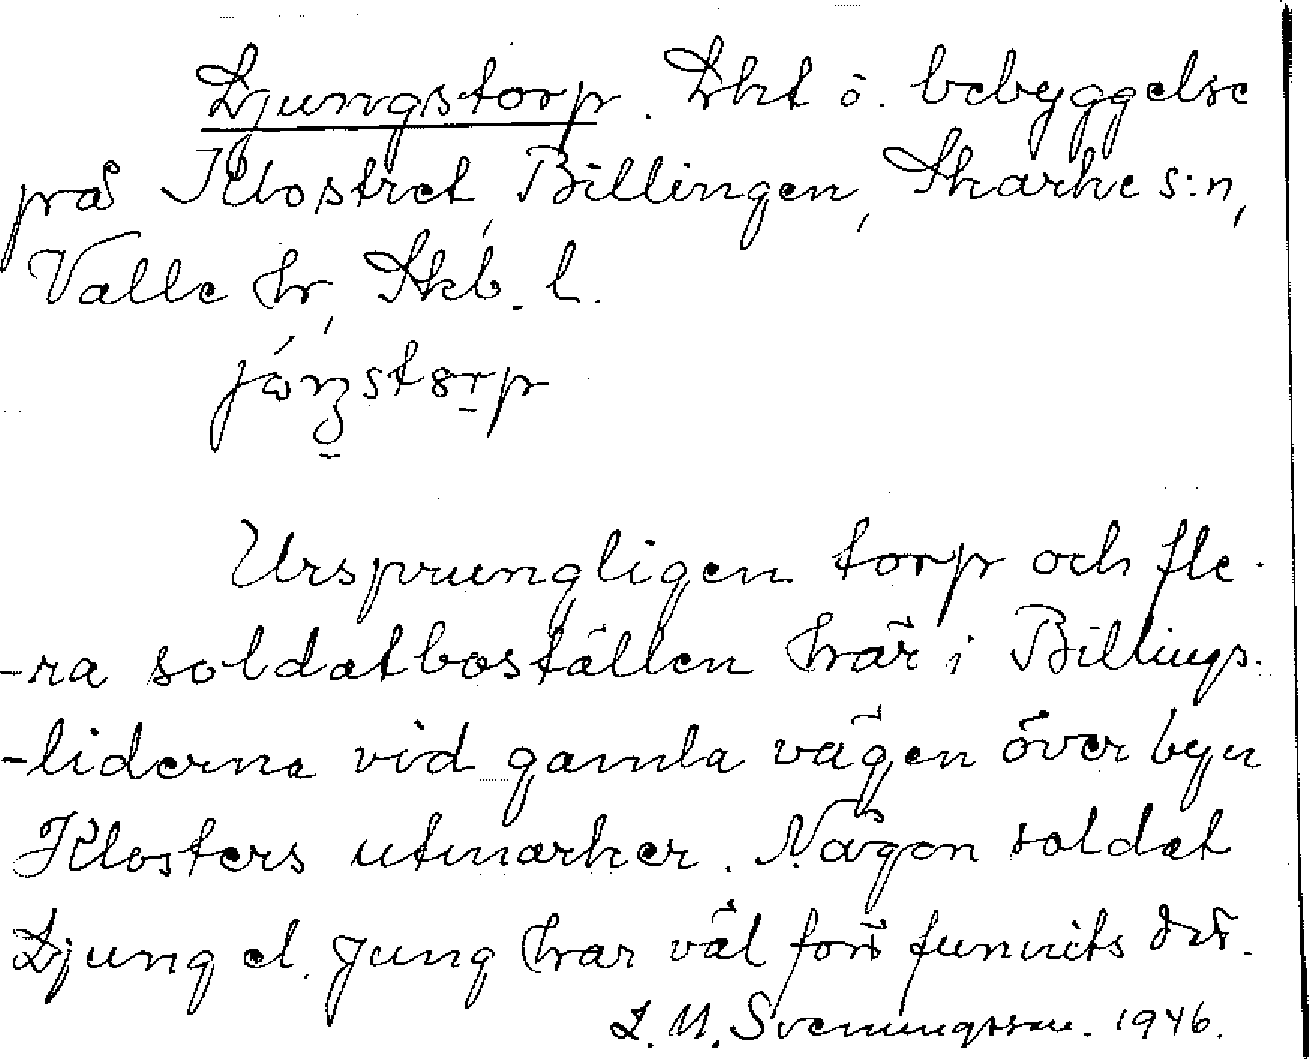 Ljungstorp. Lht o. bebyggelse
på Klostret, Billingen, Skarke s:n,
Valle hr, Skb. l.
Ursprungligen torp och fle-
-ra soldatboställen här i Billings-
-liderna vid gamla vägen över byn
Klosters utmarker. Någon soldat
Ljung el. Jung har väl förr funnits där.
L. M. Svenungsson. 1946.